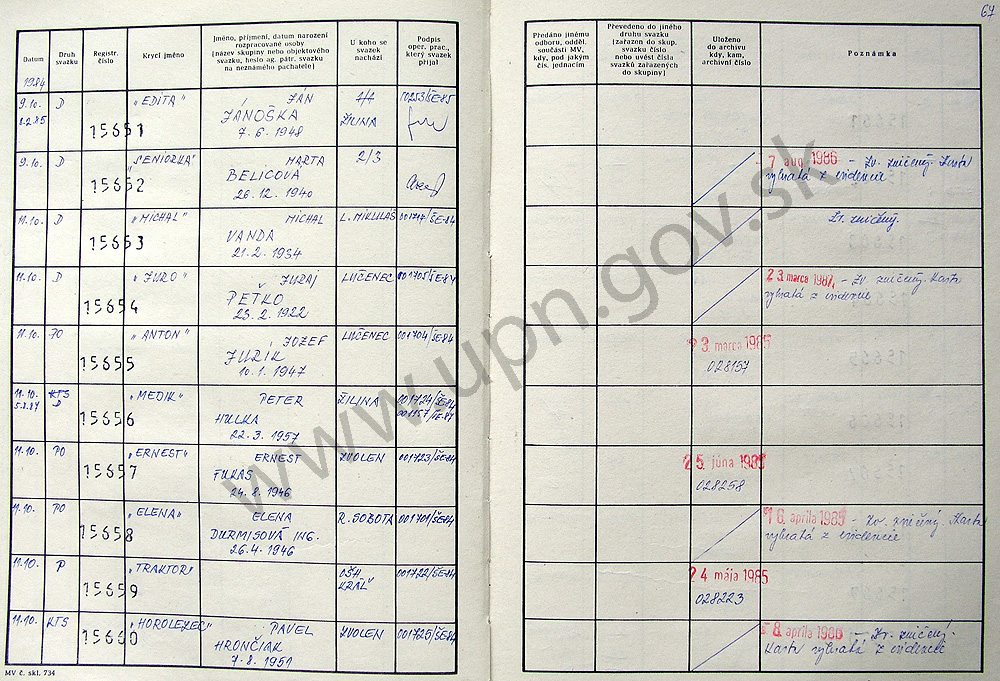 67
Datum
Druh svazku
Registr. číslo
Krycí jméno
Jméno, příjmení, datum narození
rozpracované osoby
(název skupiny nebo objektového
svazku, heslo ag. pátr. svazku
na neznámého pachatele)
U koho se
svazek
nachází
Podpis
oper. prac.,
který svazek
přijal
Předáno jinému
odboru, odděl.
součásti MV,
kdy, pod jakým
čís. jednacím
Převedeno do jiného
druhu svazku
(zařazen do skup.
svazku číslo
nebo uvést čísla
svazků zařazených
do skupiny)
Uloženo
do archivu
kdy, kam,
archivní číslo
Poznámka
1984
9.10. D 15651 "EDITA" JÁN 1/1
8.2.85 JÁNOŠKA ŽILINA
7. 6. 1948
9.10. D 15652 "SENIORKA" MARTA 2/3
BELICOVÁ
26. 12. 1940
7 aug. 1986 - Zv. zničený. Karta
vybratá z evidencie
11.10. D 15653 "MICHAL" MICHAL L. MIKULÁŠ 001717/ŠE-84
VANDA
21. 2. 1934
Zv. zničený.
11.10. D 15654 "JURO" JURAJ LUČENEC 001705/ŠE-84
PEŤKO
23. 2. 1922
23. marca 1987 - Zv. zničený. Karta
vybratá z evidencie
11.10. PO 15655 "ANTON" JOZEF LUČENEC 001704/ŠE-84
JURIK
10. 1. 1947
23. marca 1985
028157
11.10. KTS 15656 "MEDIK" PETER ŽILINA 001724/ŠE-84
5.8.87 D HULKA 001157/ŠE-87
22. 3. 1957
11.10. PO 15657 "ERNEST" ERNEST ZVOLEN 001723/ŠE-84
FUKAS
24. 8. 1946
25. júna 1985
028258
11.10. PO 15658 "ELENA" ELENA R. SOBOTA 001701/ŠE-84
DURMISOVÁ ING.
26. 4. 1946
16. apríla 1985 - Zv. zničený Karta
vybratá z evidencie
11.10. P 15659 "TRAKTOR" OŠK 001722/ŠE-84
KRÁĽ
24 mája 1985
028223
11.10. KTS 15660 "HOROLEZEC" PAVEL ZVOLEN 001725/ŠE-84
HRONČIAK
7. 8. 1951
8. apríla 1986 - Zv. zničený.
Karta vybratá z evidencie
MV č. skl. 734
www.upn.gov.sk